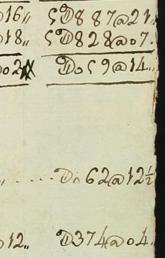 016,, 5 D 887 @ 21
018,, 5 D 828 @ 07.
02 Do 59 @ 14..
,, .... Do 62 @ 12½
012,, D 374 @ 04.